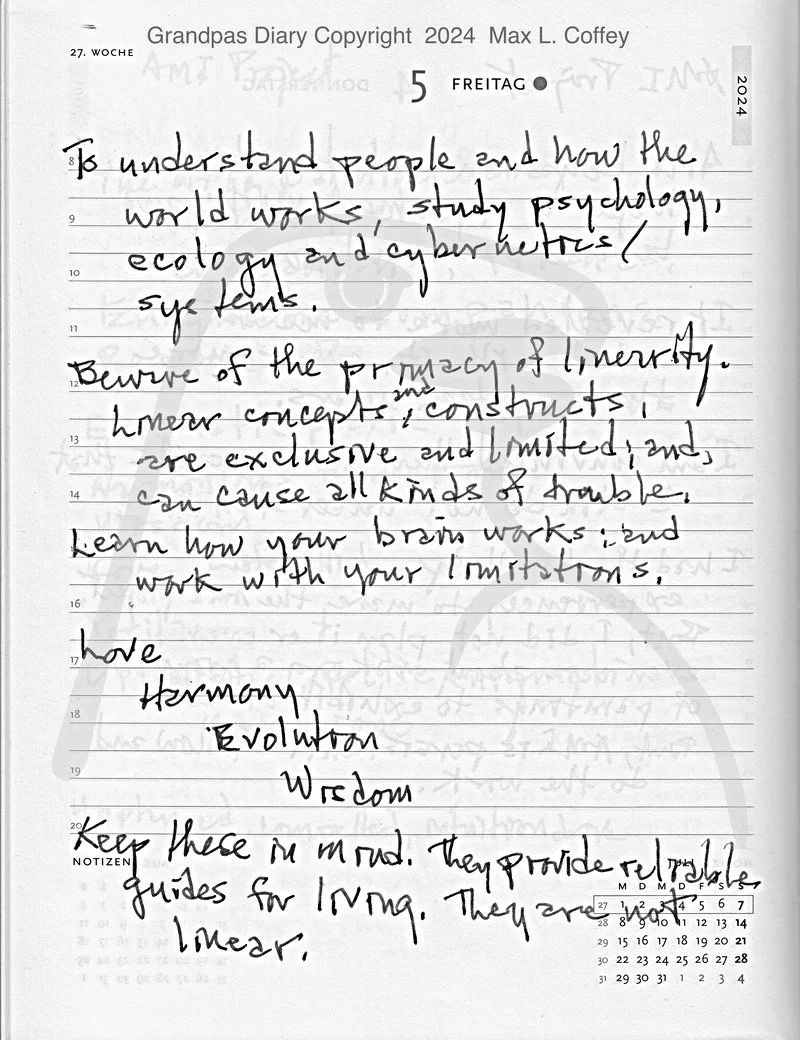 Grandpas Diary Copyright 2024 Max L. Coffey
27. WOCHE
5 FREITAG
2024
8 To understand people and how the
9 world works, study psychology,
10 ecology and cybernetics/
systems.
11
12 Beware of the primacy of linearity.
Linear concepts, and constructs,
13 are exclusive and limited; and,
14 can cause all kinds of trouble.
Learn how your brain works; and
work with your limitations.
16
17 Love
Harmony
18
Evolution
19 Wisdom
20 Keep these in mind. They provide reliable
NOTIZEN
guides for living. They are not
linear.
JULI
M D M D F S S
27 1 2 3 4 5 6 7
28 8 9 10 11 12 13 14
29 15 16 17 18 19 20 21
30 22 23 24 25 26 27 28
31 29 30 31 1 2 3 4